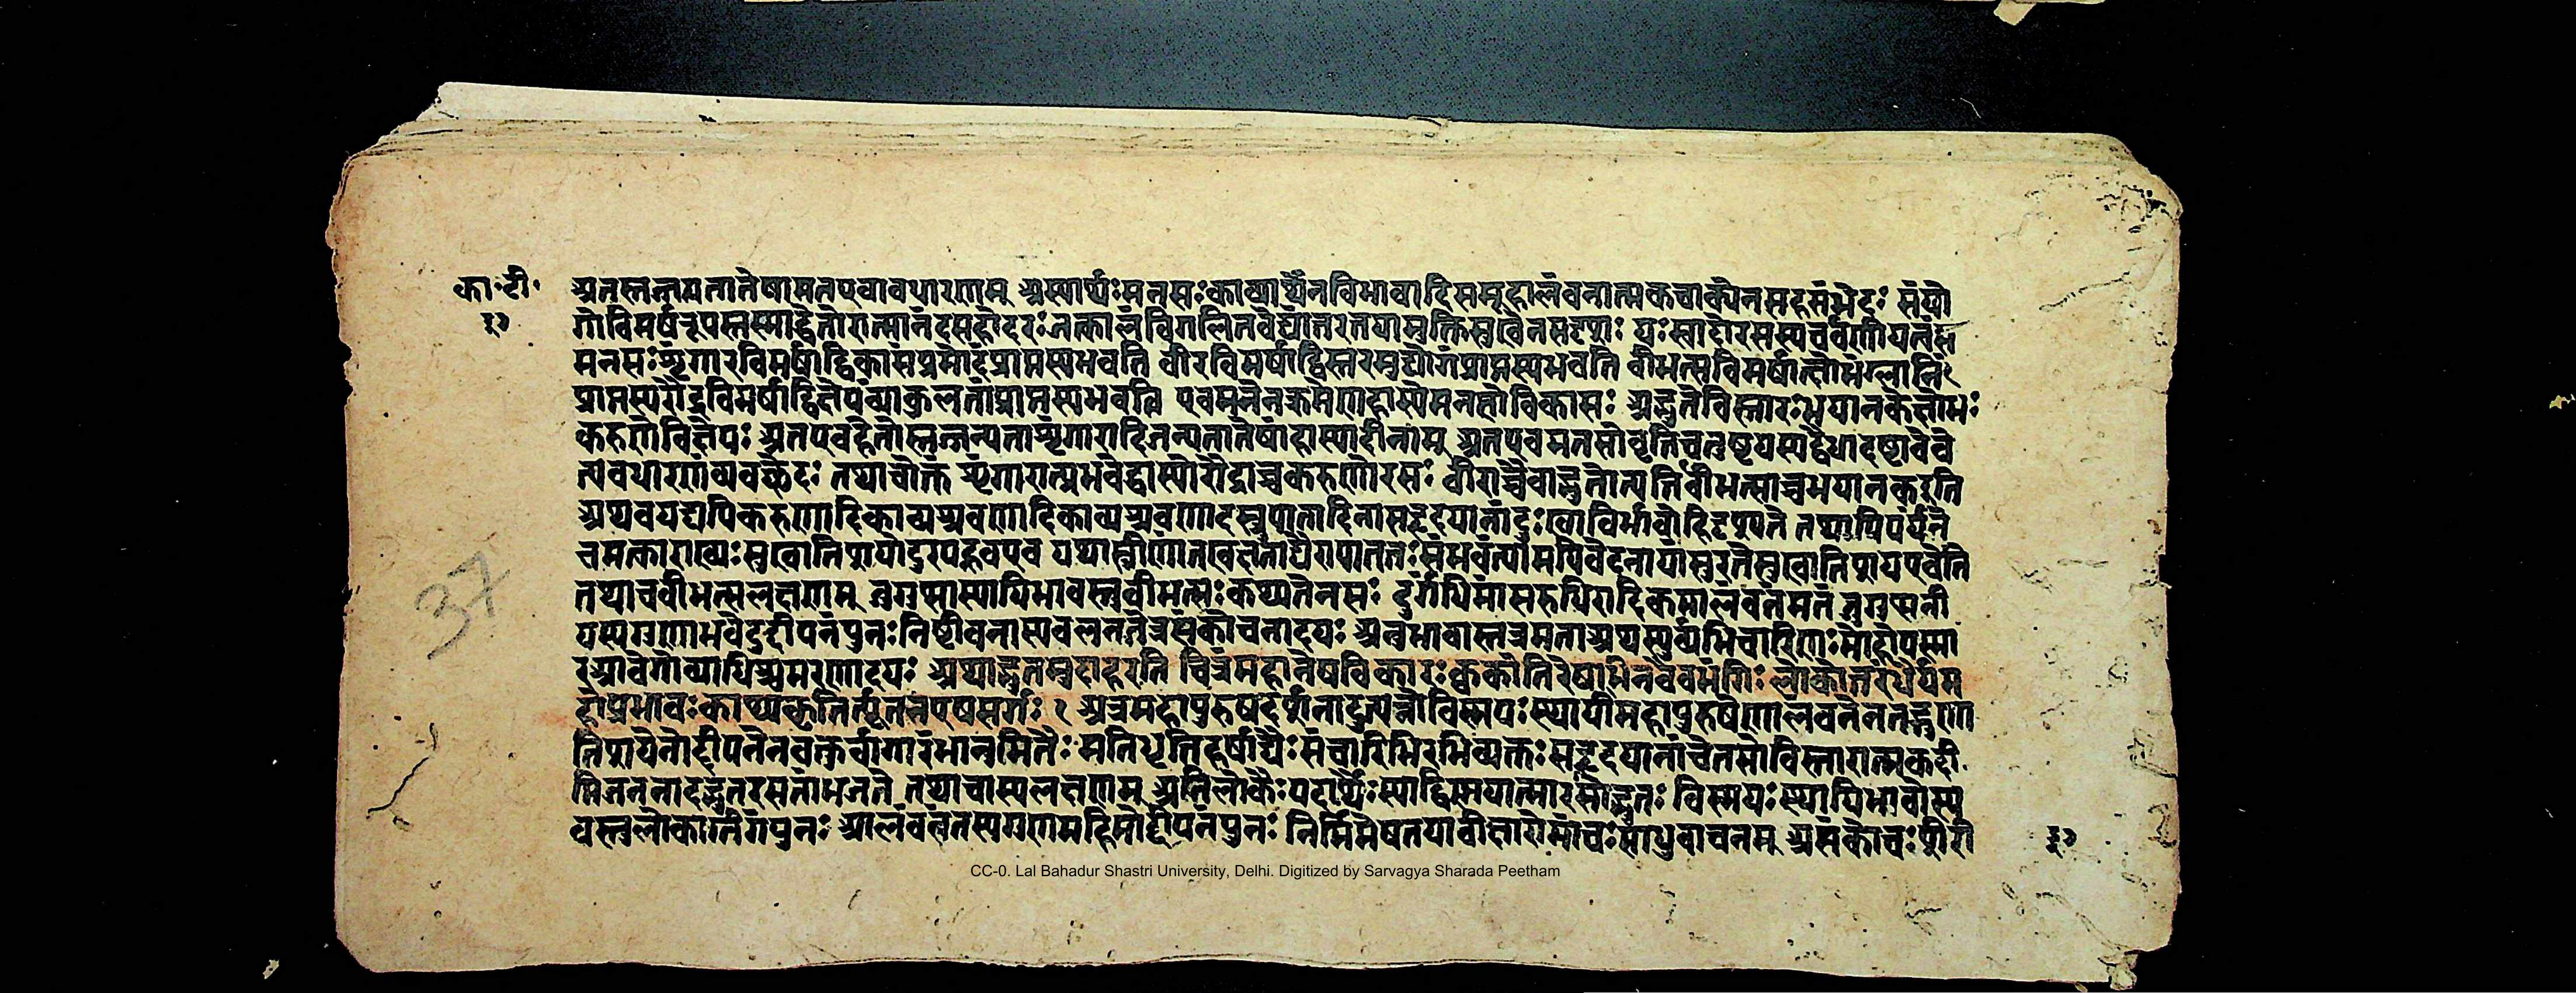 का॰टी॰
३७
अतस्तज्जन्यतातेषामतएवावधारणम् अस्यार्थः मनसः काव्यार्थेनविभावादिसमूहालंबनात्मकवाक्येनसहसंभेदः संयो
गोविमर्षरूपस्तस्माद्धेतोरात्मानंदसहोदरः तत्कालंविगलितवेद्यांतरतयामुक्तिसुखेनसदृशः यः स्वादोरसस्यचर्वणीयत्वं
मनसः शृंगारविमर्षाद्विकासंप्रमोदंप्राप्तस्यभवति वीरविमर्षाद्विस्तरमुद्योगंप्राप्तस्यभवति बीभत्सविमर्षात्क्षोभंग्लानिं
प्राप्तस्यरौद्रविमर्षाद्विक्षेपंव्याकुलतांप्राप्तस्यभवति एवमनेनक्रमेणहास्येमनसोविकासः अद्भुतेविस्तारः भयानकेक्षोभः
करुणेविक्षेपः अतएवहेतोस्तज्जन्यताशृंगारादिजन्यतातेषांहास्यादीनाम् अतएवमनसोवृत्तिचतुष्टयस्यद्वैधादष्टावेवे
त्यवधारणंव्यवच्छेदः तथाचोक्तं शृंगारात्प्रभवेद्धास्योरौद्राच्चकरुणोरसः वीराच्चैवाद्भुतोत्पत्तिर्बीभत्साच्चभयानकइति
अथवयद्यपिकरुणादिकाव्यश्रवणादिकाव्यश्रवणादस्रुपातादिनासहृदयानांदुःखाविर्भावोहिदृश्यते तथापिपर्यंते
चमत्काराख्यः सुखातिशयोदुरपह्नवएव यथास्त्रीणांनखक्षताद्यैरापाततः संभवंत्यामपिवेदनायांसुरतेसुखातिशयएवेति
तथाचबीभत्सलक्षणम् जुगुप्सास्थायिभावस्तुबीभत्सः कथ्यतेरसः दुर्गंधिमांसरुधिरादिकमालंबनंमतं जुगुप्सनी
यस्यगुणाभवेदुद्दीपनंपुनः निष्ठीवनास्यवलननेत्रसंकोचनादयः अनुभावास्तत्रमताअथस्युर्व्यभिचारिणः मोहोपस्मा
रआवेगोव्याधिश्चमरणादयः अथाद्भुतमुदाहरति चित्रंमहानेषविकारः क्वकांतिरेषाभिनवैवभंगिः लोकोत्तरंधैर्यम
होप्रभावः काप्यकृतिर्नूतनएषसर्गः १ अत्रमहापुरुषदर्शनादुत्पन्नोविस्मयः स्थायीमहापुरुषेणालंबनेनतद्गुणा
तिशयेनोद्दीपनेनवक्तुर्वागारंभानुमितैः मतिधृतिहर्षाद्यैः संचारिभिरभिव्यक्तः सहृदयानांचेतसोविस्तारात्मकदी
प्तिजननादद्भुतरसतांभजते तथाचास्यलक्षणम् अतिलोकैः पदार्थैः स्याद्विस्मयात्मारसोद्भुतः विस्मयः स्थायिभावोस्य
वस्तुलोकातिगंपुनः आलंबनंतस्यगुणमहिमोद्दीपनंपुनः निर्निमेषतयावीक्षारोमांचः साधुवाचनम् असंकोचः शरी
३७
37
CC-0. Lal Bahadur Shastri University, Delhi. Digitized by Sarvagya Sharada Peetham